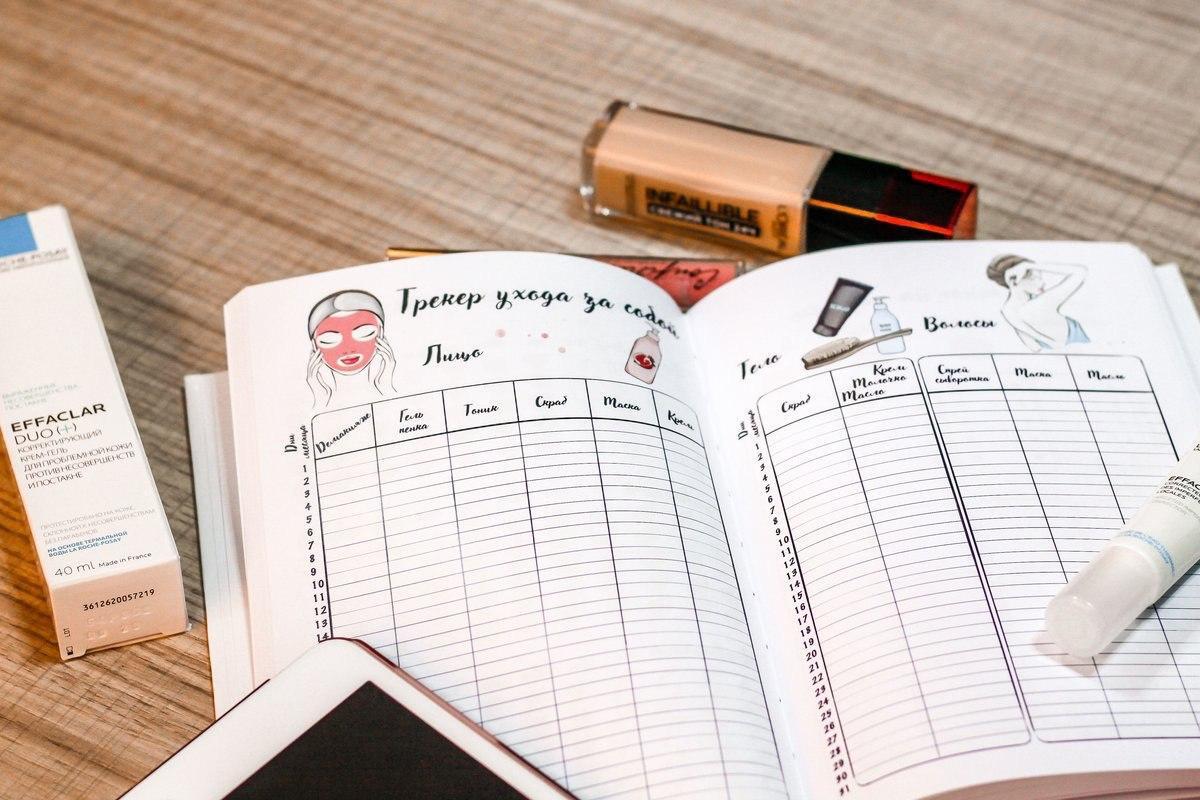 INFAILLIBLE
СВЕЖИЙ ТОН 24Ч
L'ORÉAL
Трекер ухода за собой
Лицо
Дни месяца
Демакияж
Гель пенка
Тоник
Скраб
Маска
Крем
1
2
3
4
5
6
7
8
9
10
11
12
13
14
Тело
Волосы
Дни месяца
Скраб
Крем
Молочко
Масло
Спрей
сыворотка
Маска
Масло
1
2
3
4
5
6
7
8
9
10
11
12
13
14
15
16
17
18
19
20
21
22
23
24
25
26
27
28
29
30
31
ВЫРАЖЕННЫЕ
НЕСОВЕРШЕНСТВА
ПОСТАКНЕ
EFFACLAR
DUO (+)
КОРРЕКТИРУЮЩИЙ
КРЕМ-ГЕЛЬ
ДЛЯ ПРОБЛЕМНОЙ КОЖИ
ПРОТИВ НЕСОВЕРШЕНСТВ
И ПОСТАКНЕ
ПРОТЕСТИРОВАНО НА КОЖЕ,
СКЛОННОЙ К НЕСОВЕРШЕНСТВАМ
БЕЗ ПАРАБЕНОВ
НА ОСНОВЕ ТЕРМАЛЬНОЙ
ВОДЫ LA ROCHE-POSAY
40 ml Made in France
3612620057219